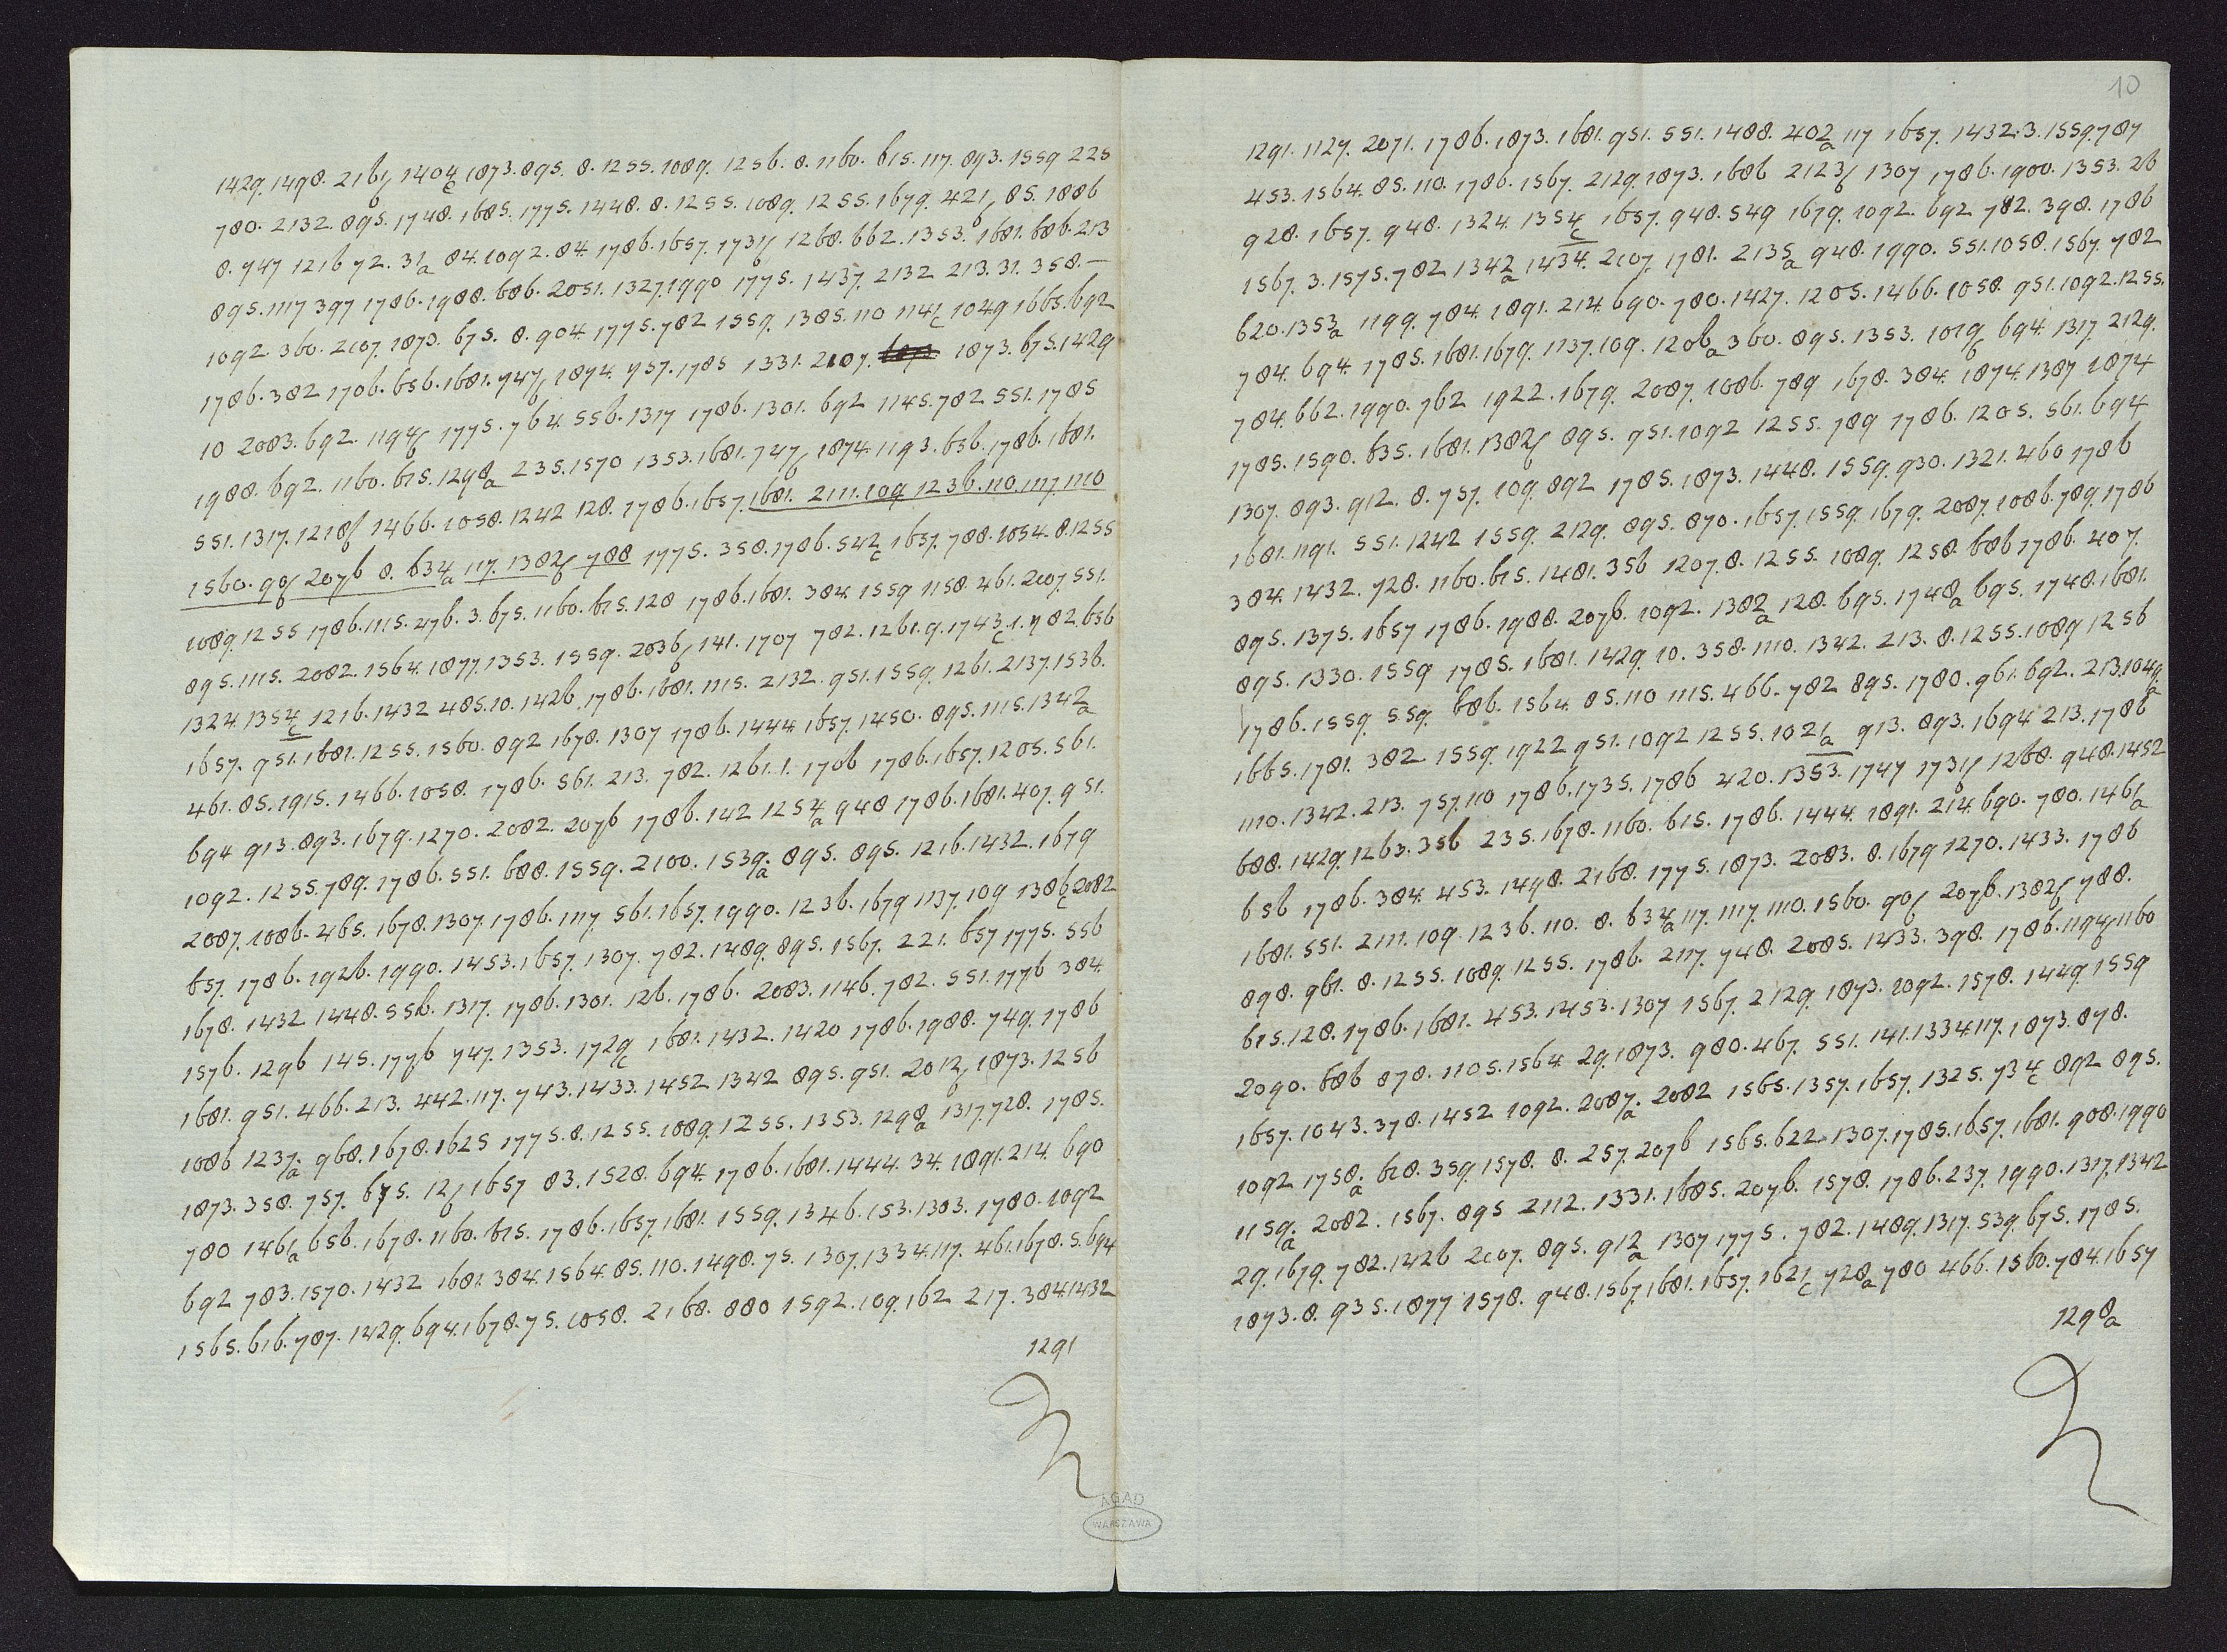 1429. 1498. 2161b 1404c 1873. 895. 8. 1255. 1089. 1256. 8. 1160. 615. 117. 893. 1559 225
780. 2132. 895. 1748. 1685. 1775. 1448. 8. 1255. 1089. 1255. 1679. 421b 85. 1886
8. 747 1216 72. 31a 84. 1092. 84. 1786. 1657. 1731f 1268. 662. 1353. 1681. 686. 213
895. 1117 397 1786. 1988. 686. 2051. 1327. 1990 1775. 1437. 2132 213. 31. 358. —
1092 360. 2107. 1873. 675. 8. 904. 1775. 782 1559. 1385. 110 1141c 1049 1665. 692
1786. 382 1706. 656. 1681. 747b 1874. 757. 1785 1331. 2107. 1873. 675. 1429
10 2083. 692. 1194b 1775. 764. 556. 1317 1786. 1301. 692 1145. 782 551. 1785
1988. 692. 1160. 615. 1298a 235. 1570 1353. 1681. 747b 1874. 1193. 636. 1786. 1681.
551. 1317. 1218b 1466. 1058. 1242 128. 1786. 1657. 1681. 2111. 109 1236. 110. 1117. 1110
1560. 90b 2076 8. 634a 117. 1382f 788 1775. 358. 1786. 542c 1657. 788. 1054. 8. 1255
1089. 1255 1786. 1115. 276. 3. 675. 1160. 615. 128 1786. 1681. 384. 1559 1158. 461. 2107. 551.
895. 1115. 2082. 1564. 1877. 1353. 1559. 2036b 141. 1707 782. 1261. 9. 1743c 1. 782. 656
1324. 1354c 1216. 1432 485. 10. 1426. 1786. 1681. 1115. 2132. 951. 1559. 1261. 2137. 1536.
1657. 951. 1681. 1255. 1560. 892 1678. 1307 1786. 1444. 1657. 1450. 895. 1115. 1342a
461. 85. 1915. 1466. 1058. 1786. 561. 213. 782. 1261. 1. 1706 1786. 1657. 1205. 561.
694 913. 893. 1679. 1270. 2082. 2076 1786. 142 1254a 948 1786. 1681. 407. 951.
1092. 1255. 789. 1786. 551. 688. 1559. 2100. 1539a 895. 895. 1216. 1432. 1679
2087. 1086. 465. 1678. 1307. 1786. 1117. 561. 1657. 1990. 1236. 1679 1137. 109 1386c 2082
657. 1786. 1926. 1990. 1453. 1657. 1307. 782. 1489. 895. 1567. 221. 657 1775. 556
1678. 1432 1448. 556. 1317. 1786. 1301. 126. 1786. 2083. 1146. 782. 551. 1776 384.
1576. 1296 145. 1776 747. 1353. 1729c 1681. 1432. 1420 1786. 1988. 749. 1786
1681. 951. 466. 213. 442. 117. 743. 1433. 1452 1342 895. 951. 2012b 1873. 1256
1086 1237a 968. 1678. 1625 1775. 8. 1255. 1089. 1255. 1353. 1298a 1317. 728. 1785.
1873. 358. 757. 675. 12b 1657 83. 1528. 694. 1786. 1681. 1444. 34. 1891. 214. 690
780 1461a 656. 1678. 1160. 615. 1786. 1657. 1681. 1559. 1346. 153. 1303. 1780. 1092
692 783. 1570. 1432 1681. 384. 1564. 85. 110. 1498. 75. 1307. 1334. 117. 461. 1678. 5. 694
1565. 616. 787. 1429. 694. 1678. 75. 1058. 2168. 880 1592. 109. 162 217. 384. 1432
1291
AGAD
WARSZAWA
10
1291. 1127. 2071. 1786. 1873. 1681. 951. 551. 1488. 402a 117 1657. 1432. 3. 1559. 787
453. 1564. 85. 110. 1786. 1567. 2129. 1873. 1686 2123f 1307 1786. 1900. 1353. 26
928. 1657. 948. 1324. 1354c 1657. 948. 549 1679. 1092. 692 782. 398. 1786
1567. 3. 1575. 782 1342a 1434. 2107. 1781. 2135a 948. 1990. 551. 1058. 1567. 782
620. 1353a 1199. 784. 1891. 214. 690. 780. 1427. 1205. 1466. 1058. 951. 1092. 1255.
784. 694. 1785. 1681. 1679. 1137. 109. 1206a 360. 895. 1353. 1019b 694. 1317. 2129.
784. 662. 1990. 762 1922. 1679. 2087. 1086. 789 1678. 384. 1874. 1387 1874
1785. 1590. 635. 1681. 1382f 895. 951. 1092 1255. 789 1786. 1205. 561. 694
1307. 893. 912. 8. 757. 109. 892 1785. 1873. 1448. 1559. 930. 1321. 460 1786
1681. 1191. 551. 1242 1559. 2129. 895. 870. 1657. 1559. 1679. 2087. 1086. 789. 1786
384. 1432. 728. 1160. 615. 1481. 356 1207. 8. 1255. 1089. 1258. 686 1786. 407.
895. 1375. 1657 1786. 1988. 2076. 1092. 1382a 128. 695. 1748a 695. 1748. 1681.
895. 1330. 1559 1785. 1681. 1429. 10. 358. 1110. 1342. 213. 8. 1255. 1089 1256
1786. 1559. 559. 686. 1564. 85. 110 1115. 466. 782 895. 1780. 961. 692. 213. 1049a
1665. 1781. 382 1559. 1922 951. 1092 1255. 1021a 913. 893. 1694 213. 1786
1110. 1342. 213. 757. 110 1786. 1735. 1786 420. 1353. 1747 1731f 1268. 948. 1452
688. 1429. 1263. 356 235. 1678. 1160. 615. 1786. 1444. 1891. 214. 690. 780. 1461a
656 1786. 384. 453. 1498. 2168. 1775. 1873. 2083. 8. 1679 1270. 1433. 1786
1681. 551. 2111. 109. 1236. 110. 8. 634a 117. 1117. 1110. 1560. 90f 2076. 1382f 788.
898. 961. 8. 1255. 1089. 1255. 1786. 2117. 748. 2085. 1433. 398. 1786. 1194f 1160
615. 128. 1786. 1681. 453. 1453. 1307 1567. 2129. 1873. 1092. 1578. 1449. 1559
2090. 686 878. 1105. 1564. 29. 1873. 980. 467. 551. 141. 1334. 117. 1873. 878.
1657. 1043. 378. 1452 1092. 2087a 2082 1565. 1357. 1657. 1325. 734c 892 895.
1092 1758a 628. 359. 1578. 8. 257. 2076 1565. 622. 1307. 1785. 1657. 1681. 908. 1990
1159a 2082. 1567. 895 2112. 1331. 1685. 2076. 1578. 1786. 237. 1990. 1317. 1342
29. 1679. 782. 1426 2107. 895. 912a 1307 1775. 782. 1489. 1317. 539. 675. 1785.
1873. 8. 935. 1877 1578. 948. 1567. 1681. 1657. 1621c 728a 780 466. 1560. 784. 1657
1298a